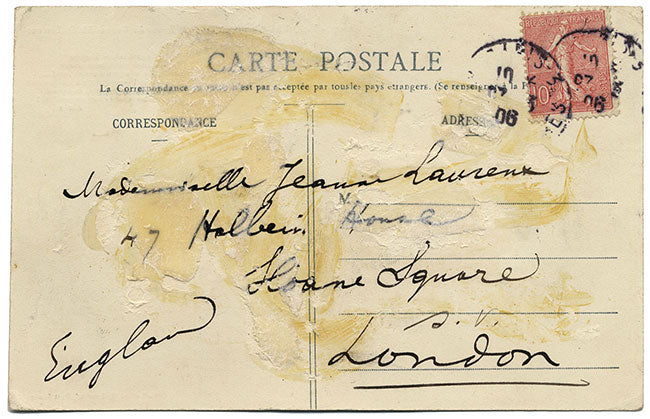 CARTE POSTALE
La Correspondance au recto n'est pas acceptée par tous les pays étrangers. (Se renseigner à la P
CORRESPONDANCE
ADRESSE
Mademoiselle Jeanne Laurent
M
47 Holbein House
Sloane Square
S. W.
England
London
REPUBLIQUE FRANCAISE
10
06
06